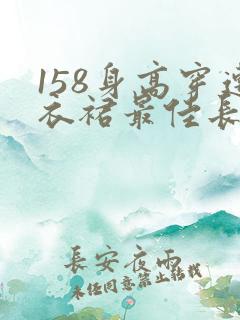 158身高穿连
衣裙最佳长
長安夜雨
未经同意禁止转载